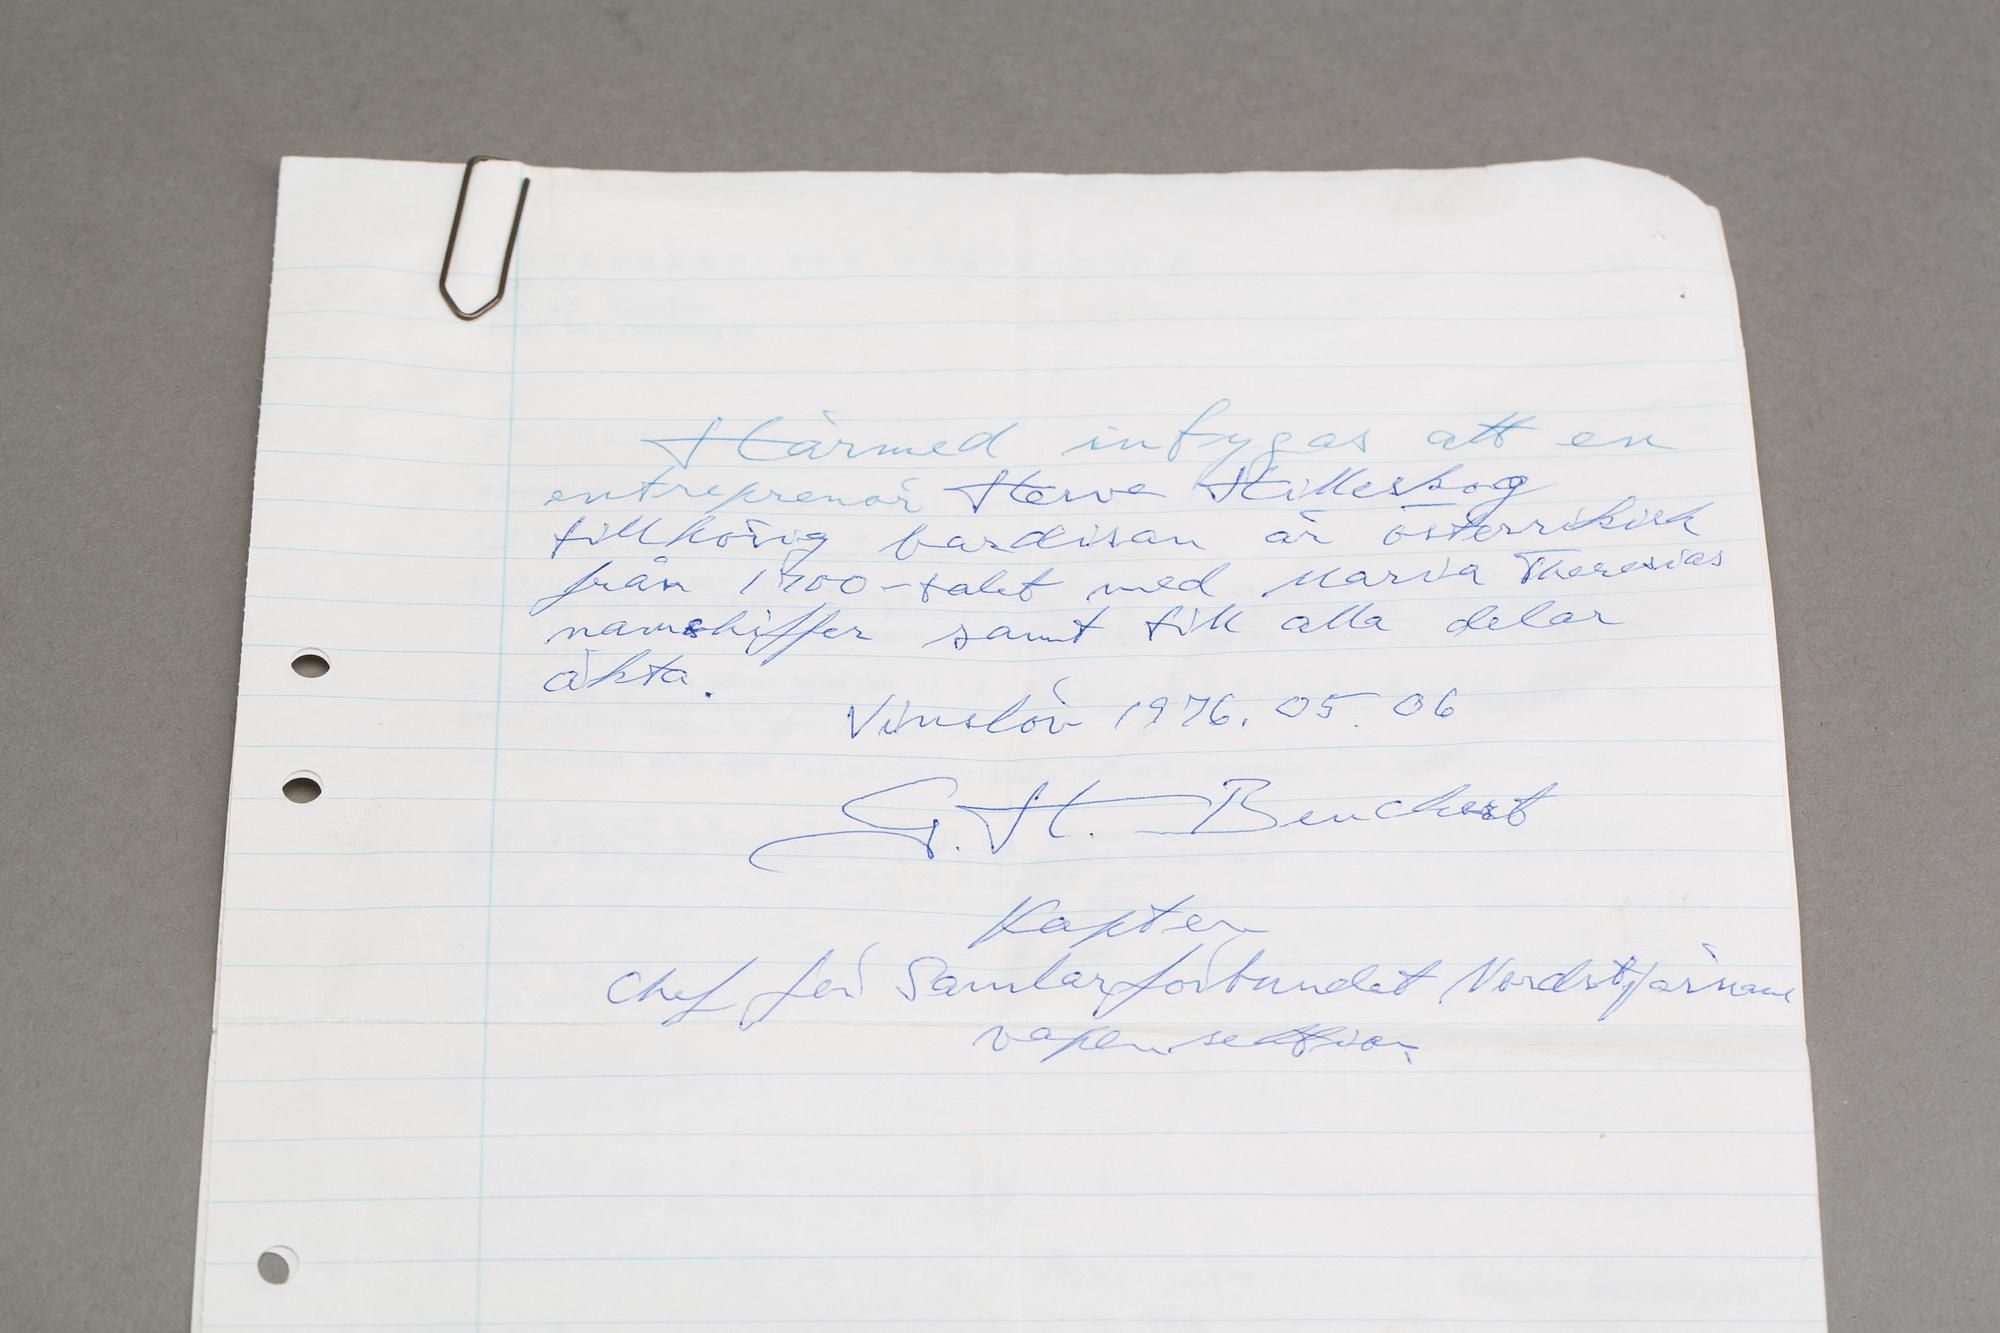 Härmed intygas att en
entreprenör Herve Hilleskog
tillhörig bardisan är österrikisk
från 1700-talet med Maria Theresias
namnchiffer samt till alla delar
äkta.
Vinslöv 1976.05.06
G.H.
Kapten
Chef för Samlarförbundet Nordstjärnans
vapensektion